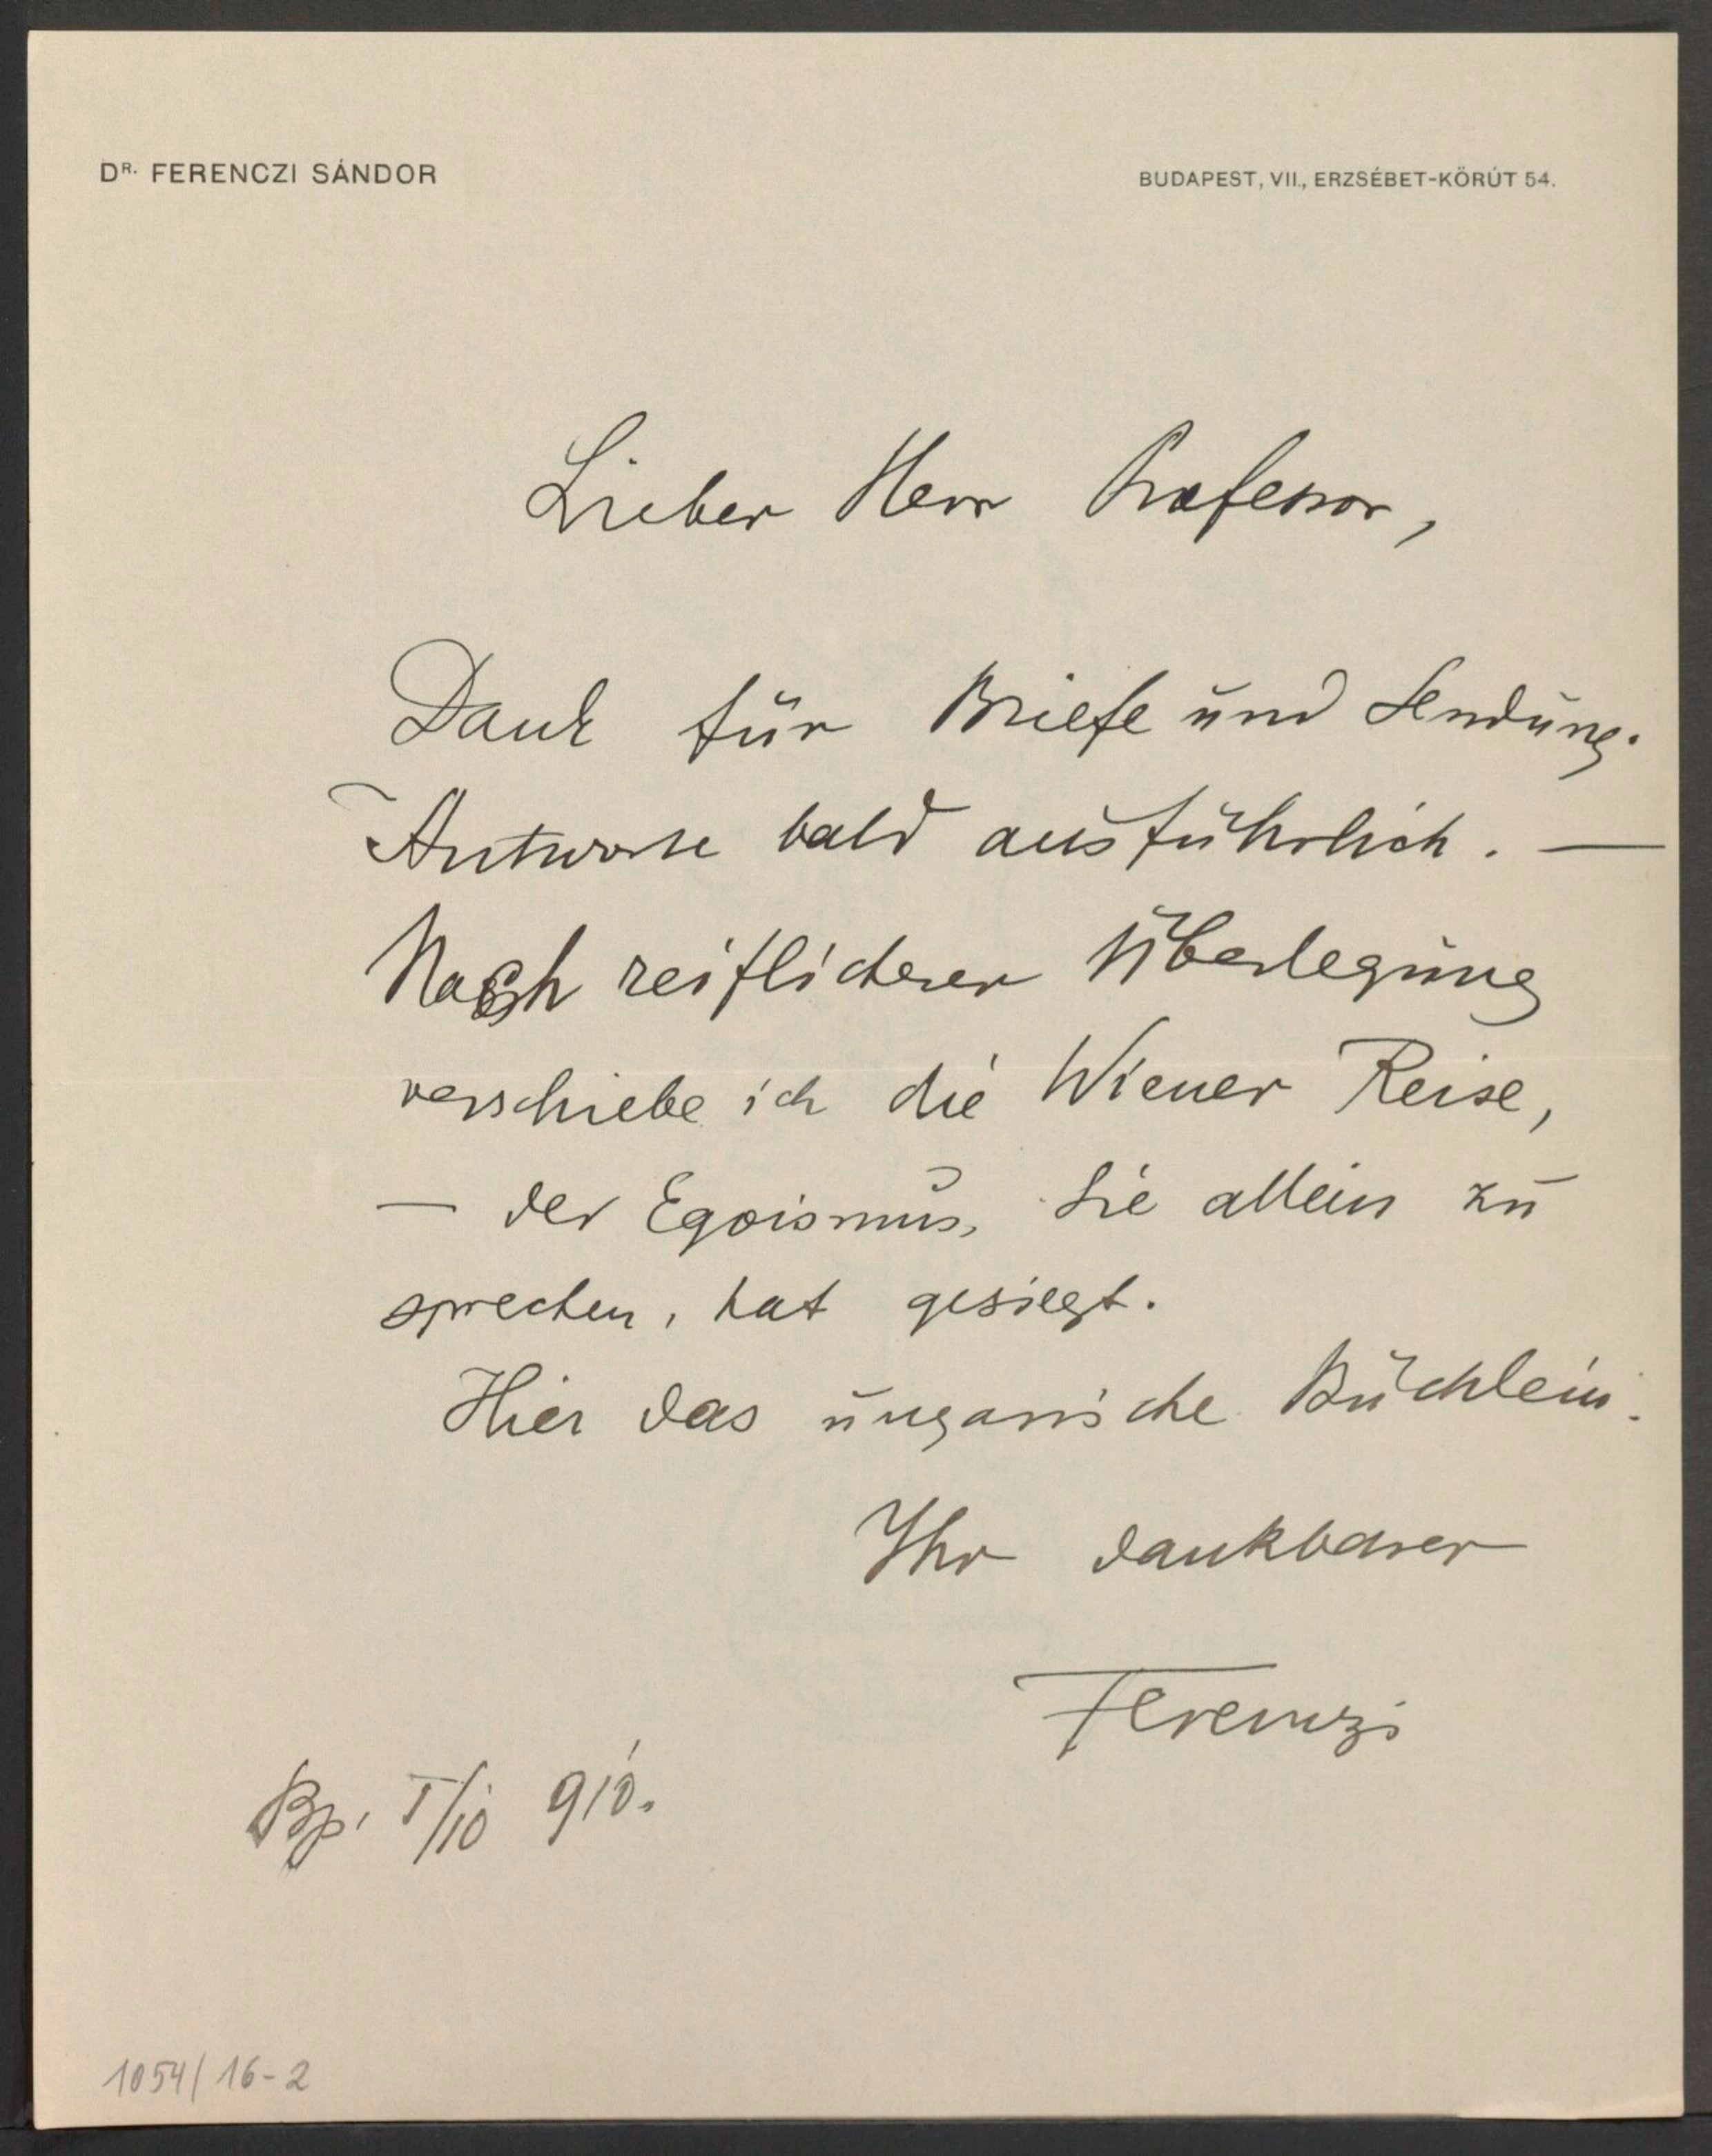 DR. FERENCZI SÁNDOR
BUDAPEST, VII., ERZSÉBET-KÖRÚT 54.
Lieber Herr Professor,
Dank für Briefe und Sendung.
Antworte bald ausführlich. —
Nach reiflicherer Überlegung
verschiebe ich die Wiener Reise,
— der Egoismus, Sie allein zu
sprechen, hat gesiegt.
Hier das ungarische Büchlein.
Ihr dankbarer
Ferenczi
Bp. I/10 910.
1054/16-2